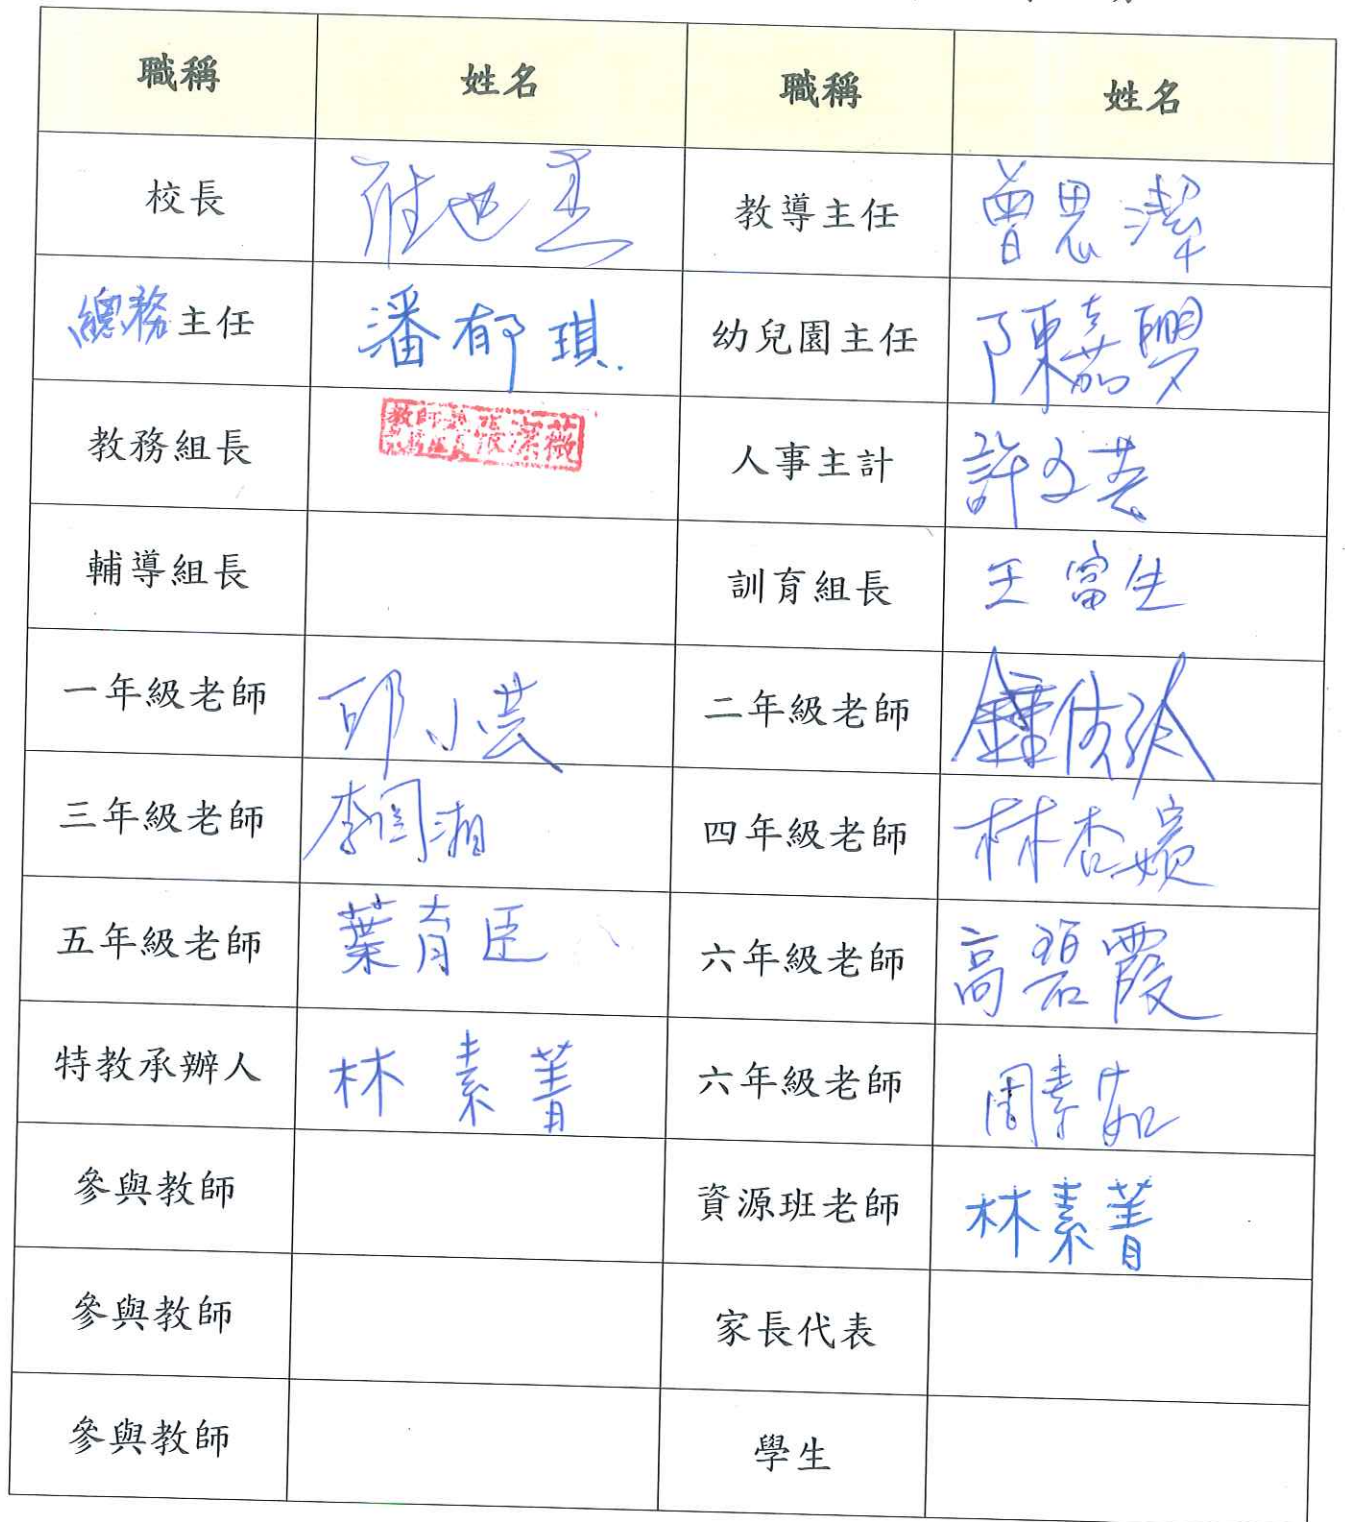 職稱 姓名 職稱 姓名
校長 教導主任 曾思潔
總務主任 潘郁琪. 幼兒園主任 陳嘉
教務組長 人事主計 許文
輔導組長 訓育組長 王富生
一年級老師 邱小芸 二年級老師 鍾
三年級老師 李 湘 四年級老師 林杏嬪
五年級老師 葉育臣 六年級老師 高碧霞
特教承辦人 林素菁 六年級老師 周素茹
參與教師 資源班老師 林素菁
參與教師 家長代表
參與教師 學生